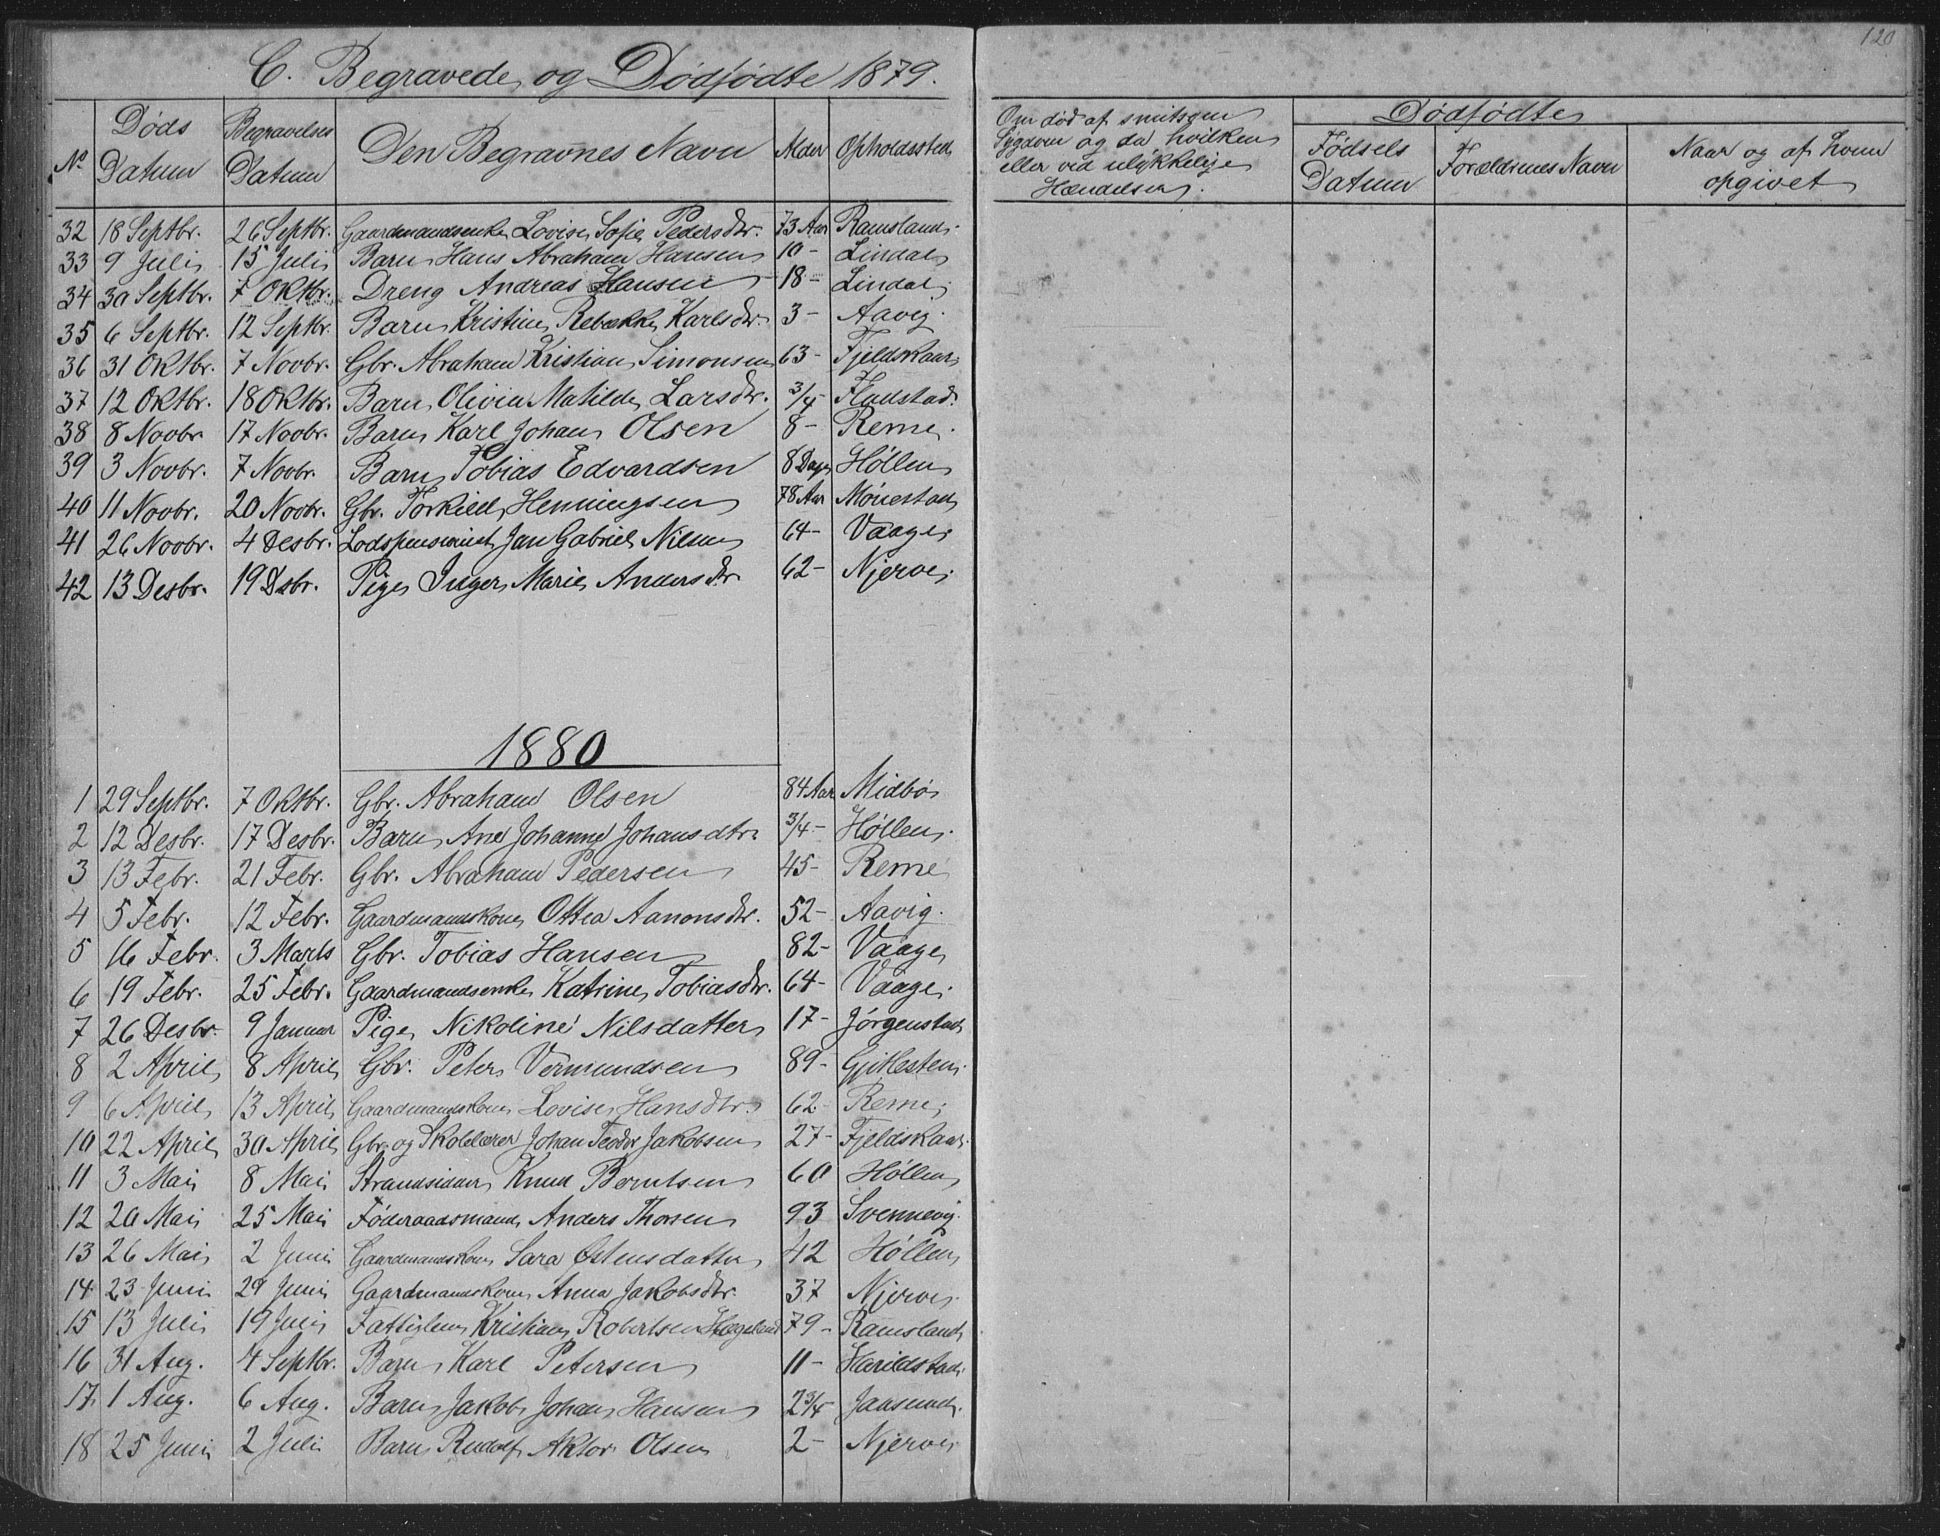 120
C. Begravede og Dødfødte 1879.
No Døds Datum Begravelses Datum Den Begravnes Navn Alder Opholdssted
Om død af smitsom
Sygdom og da hvilken
eller ved ulykkelige
Hændelser.
Dødfødte
Fødsels Datum Forældrenes Navn Naar og af hvem opgivet
32 18 Septbr. 26 Septbr. Gaardmandsenke Lovise Sofie Pedersdtr. 73 Aar Ramsland.
33 9 Juli 15 Juli Barn Hans Abraham Hansen 10 - Lindal
34 30 Septbr. 7 Oktbr. Dreng Andreas Hansen 18 - Lindal
35 6 Septbr. 12 Septbr. Barn Kristine Rebække Karlsdtr. 3 - Aavig.
36 31 Oktbr. 7 Novbr. Gbr. Abraham Kristian Simonsen 63 - Fjeldskaar
37 12 Oktbr. 18 Oktbr. Barn Olivia Matilde Larsdtr. 3/4 - Fladstad.
38 8 Novbr. 17 Novbr. Barn Karl Johan Olsen 8 - Reme.
39 3 Novbr. 7 Novbr. Barn Tobias Edvardsen 8 Dage Høllen
40 11 Novbr. 20 Novbr. Gbr. Torkild Henningsen 78 Aar Mönestad
41 26 Novbr. 4 Desbr. Lodspensionist Jan Gabriel Nilsen 64 - Vaage
42 13 Desbr. 19 Dsbr. Pige Inger Marie Andersdtr. 62 - Njerve
1880
1 29 Septbr. 7 Oktbr. Gbr. Abraham Olsen 84 Aar Midbø
2 12 Desbr. 17 Desbr. Barn Ane Johanne Johansdtr. 3/4 - Høllen.
3 13 Febr. 21 Febr. Gbr. Abraham Pedersen 45 - Reme
4 5 Febr. 12 Febr. Gaardmandskone Ottea Aanonsdtr. 52 - Aavig.
5 16 Febr. 3 Marts Gbr. Tobias Hansen 82 - Vaage
6 19 Febr. 25 Febr. Gaardmandsenke Katrine Tobiasdtr. 64 - Vaage.
7 26 Desbr. 9 Januar Pige Nikoline Nilsdatter 17 - Jørgenstad
8 2 April 8 April Gbr. Peter Vermundsen 89 - Gjitlesten.
9 6 April 13 April Gaardmandskone Lovise Hansdtr. 62 - Reme
10 22 April 30 April Gbr. og Skolelærer Johan Teodor Jakobsen 27 - Fjeldskaar.
11 3 Mai 8 Mai Strandsidder Knud Berntsen 60 Høllen
12 20 Mai 25 Mai Føderaadsmand Anders Thorsen 93 Svennevig.
13 26 Mai 2 Juni Gaardmandskone Sara Østensdatter 42 Høllen
14 23 Juni 29 Juni Gaardmandskone Anna Jakobsdtr. 37 Njerve
15 13 Juli 19 Juli Fattiglem Kristian Robertsen Hægeland 79 - Ramsland
16 31 Aug. 4 Septbr. Barn Karl Petersen 11 - Harildstad
17. 1 Aug. 6 Aug. Barn Jakob Johan Hansen 2 3/4 Jaasund.
18 25 Juni 2 Juli Barn Rudolf Aktor Olsen 2 - Njerve